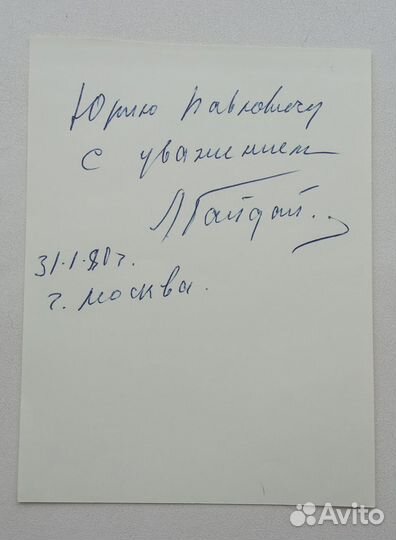 Юрию Павловичу
с уважением
ЛГайдай.
31.1.80г.
г. Москва.
Avito